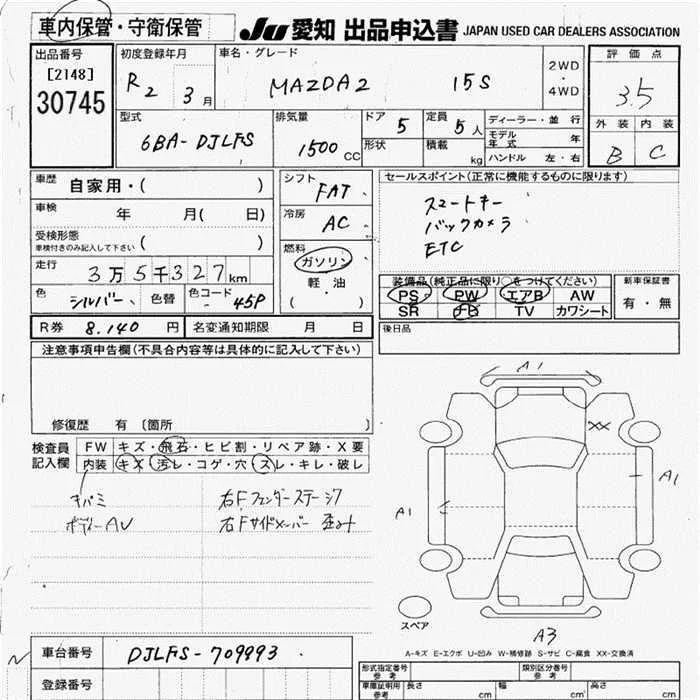 車内保管・守衛保管 JU 愛知 出品申込書 JAPAN USED CAR DEALERS ASSOCIATION
出品番号 初度登録年月 車名・グレード 評価点
[2148] R2 3月 MAZDA2 15S 2WD・4WD 3.5
30745
型式 排気量 ドア 5 定員 5人 ディーラー・並行 外装 内装
6BA-DJLFS 1500cc 形状 積載 kg モデル年式 年 B C
ハンドル 左・右
車歴 自家用・( ) シフト FAT セールスポイント(正常に機能するものに限ります)
車検 年 月( 日) 冷房 AC スマートキー
受検形態 車検付きのみ記入して下さい ( ) バックカメラ
燃料 ETC
走行 3万5千327km ガソリン
軽・油
・( )
装備品(純正品に限り○をつけてください) 新車保証書
色 シルバー 色替 色コード 45P PS PW エアB AW 有・無
SR TV カワシート
R券 8,140円 名変通知期限 月 日 後日品
注意事項申告欄(不具合内容等は具体的に記入して下さい)
修復歴 有〔箇所 〕
検査員記入欄 FW キズ・飛石・ヒビ割・リペア跡・X要
内装 キズ・汚レ・コゲ・穴・スレ・キレ・破レ
キバミ 右Fフェンダーステージワ
ボディーAU 右Fサイドメンバー 歪み
A1
XX
A1
A1
スペア
A3
A-キズ E-エクボ U-凹み W-補修跡 S-サビ C-腐食 XX-交換済
車台番号 DJLFS-709993
登録番号
形式指定番号 参考 類別区分番号 参考
車庫証明用 参考 長さ cm 幅 cm 高さ cm